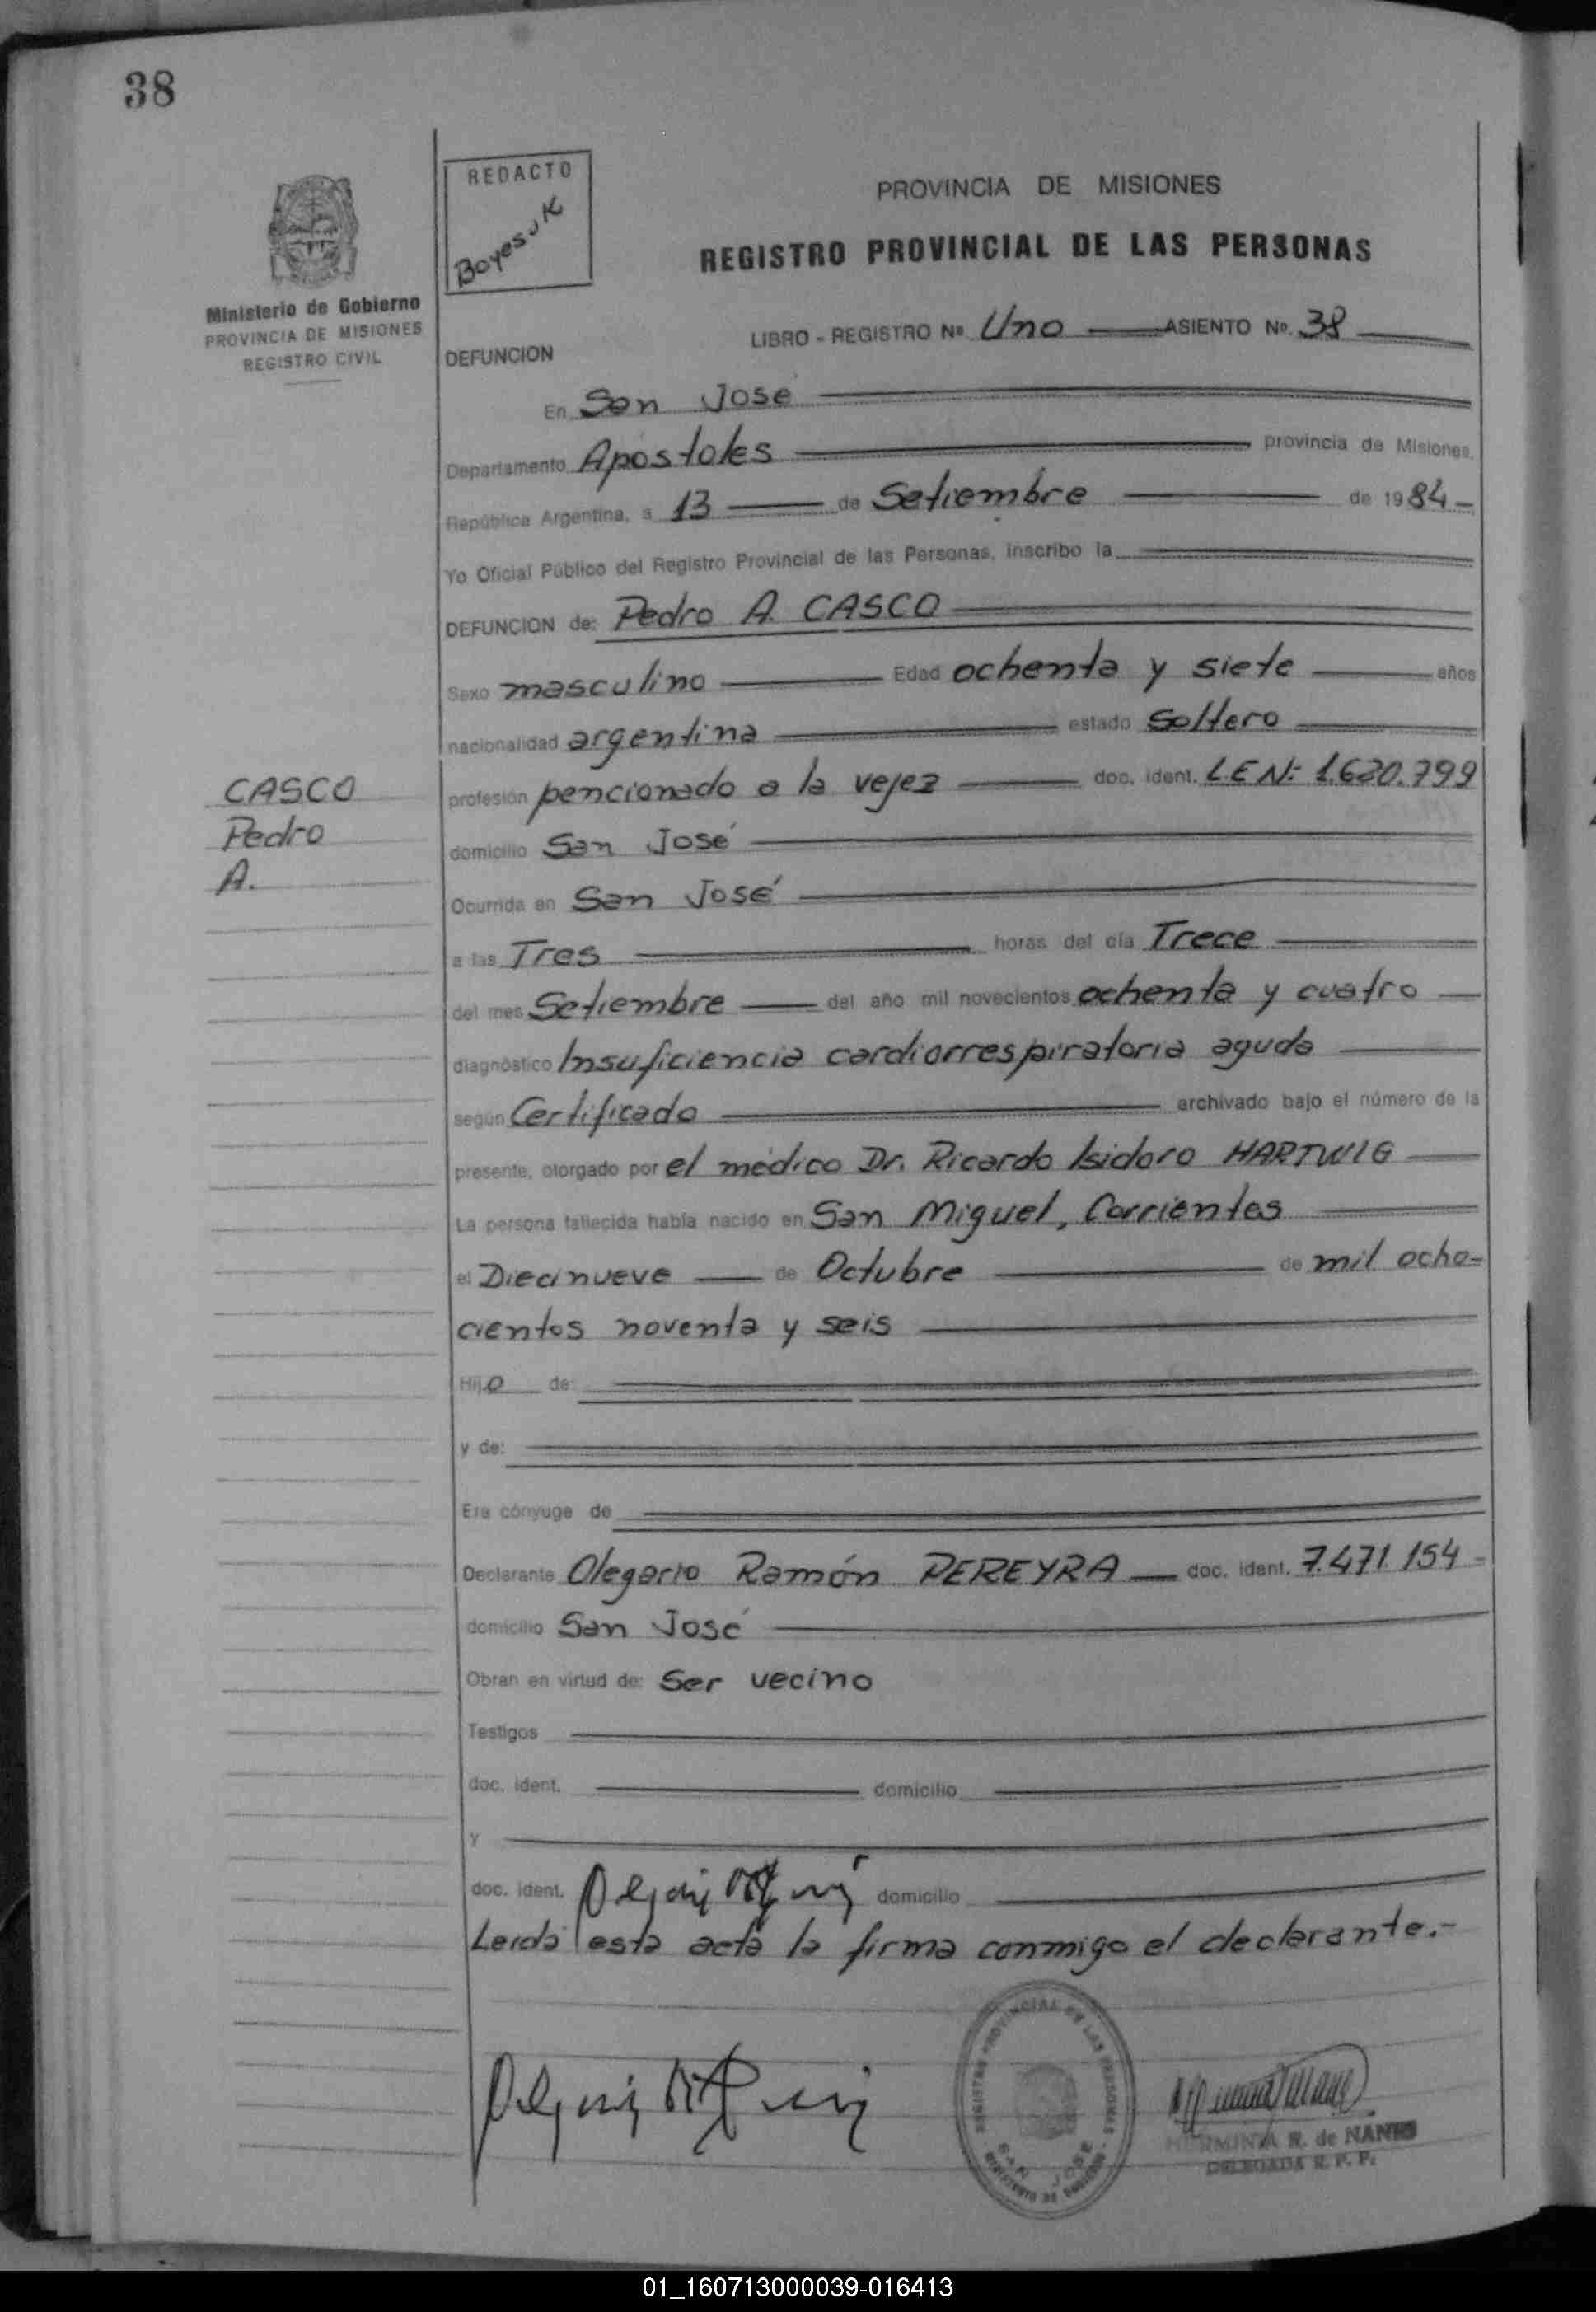 38
REDACTO
BoyesuK
Ministerio de Gobierno
PROVINCIA DE MISIONES
REGISTRO CIVIL
PROVINCIA DE MISIONES
REGISTRO PROVINCIAL DE LAS PERSONAS
LIBRO - REGISTRO Nº Uno ASIENTO Nº 38
DEFUNCION
En San Jose
Departamento Apostoles provincia de Misiones,
República Argentina, a 13 de Setiembre de 1984-
Yo Oficial Público del Registro Provincial de las Personas, inscribo la
DEFUNCION de: Pedro A. CASCO
Sexo masculino Edad ochenta y siete años
nacionalidad argentina estado Soltero
profesión pencionado a la vejez doc. ident. L.E.N: 1.620.799
CASCO
Pedro
A.
domicilio San José
Ocurrida en San José
a las Tres horas del día Trece
del mes Setiembre del año mil novecientos ochenta y cuatro
diagnóstico Insuficiencia cardiorrespiratoria aguda
según Certificado archivado bajo el número de la
presente, otorgado por el médico Dr. Ricardo Isidoro HARTWIG
La persona fallecida había nacido en San Miguel, Corrientes
el Diecinueve de Octubre de mil ocho-
cientos noventa y seis
Hijo de:
y de:
Era cónyuge de
Declarante Olegario Ramón PEREYRA doc. ident. 7.471.154-
domicilio San José
Obran en virtud de: Ser vecino
Testigos
doc. ident. domicilio
y
doc. ident. domicilio
Leída esta acta la firma conmigo el declarante.-
REGISTRO PROVINCIAL DE LAS PERSONAS
SAN JOSE
MINISTERIO DE GOBIERNO
HERMINIA R. de
DELEGADA R. P. P.
01_160713000039-016413